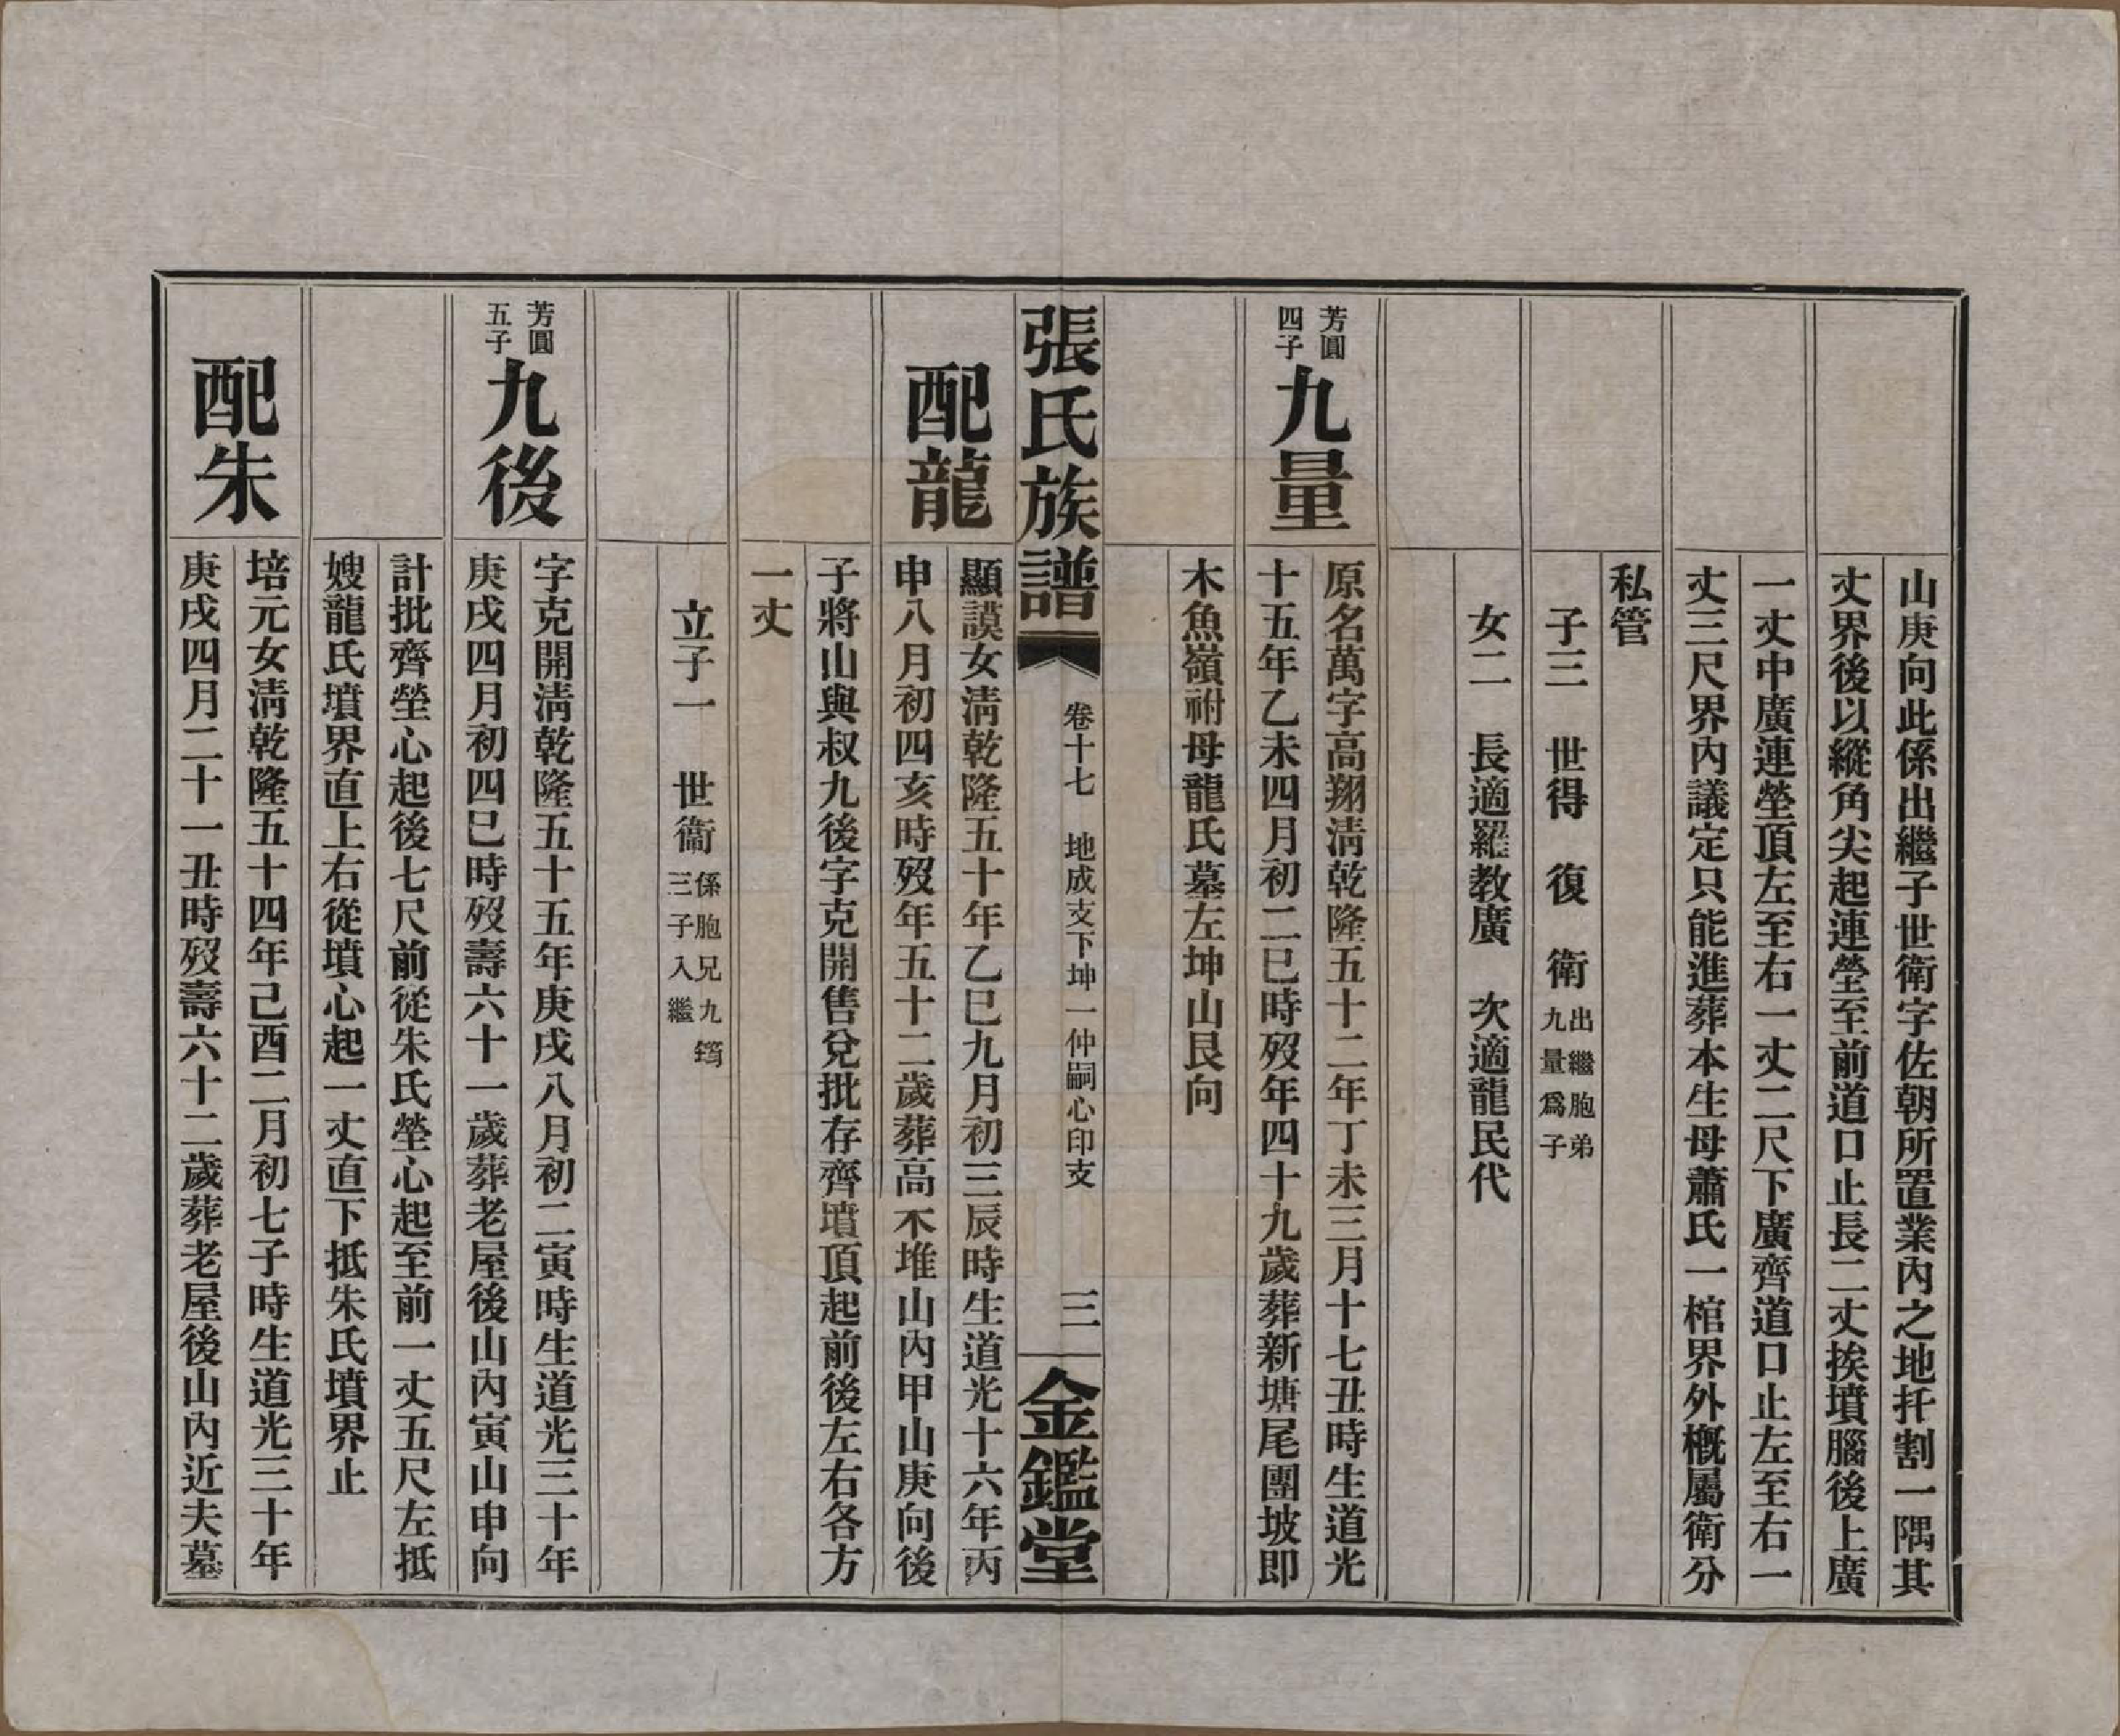 山庚向此係出繼子世衛字佐朝所置業內之地扦割一隅其
丈界後以縱角尖起連塋至前道口止長二丈挨墳腦後上廣
一丈中廣連塋頂左至右一丈二尺下廣齊道口止左至右一
丈三尺界內議定只能進葬本生母蕭氏一棺界外槪屬衛分
私管
子三　世得　復　衛
出繼胞弟
九量爲子
女二　長適羅敎廣　次適龍民代
芳圓
四子
九量
原名萬字高翔淸乾隆五十二年丁未三月十七丑時生道光
十五年乙未四月初二巳時歿年四十九歲葬新塘尾團坡即
木魚嶺祔母龍氏墓左坤山艮向
張氏族譜　卷十七　地成支下坤一仲嗣心印支　三　金鑑堂
配龍
顯謨女淸乾隆五十年乙巳九月初三辰時生道光十六年丙
申八月初四亥時歿年五十二歲葬高不堆山內甲山庚向後
子將山與叔九後字克開售兌批存齊墳頂起前後左右各方
一丈
立子一　世衞
係胞兄九筠
三子入繼
芳圓
五子
九後
字克開淸乾隆五十五年庚戌八月初二寅時生道光三十年
庚戌四月初四巳時歿壽六十一歲葬老屋後山內寅山申向
計批齊塋心起後七尺前從朱氏塋心起至前一丈五尺左抵
嫂龍氏墳界直上右從墳心起一丈直下抵朱氏墳界止
配朱
培元女淸乾隆五十四年己酉二月初七子時生道光三十年
庚戌四月二十一丑時歿壽六十二歲葬老屋後山內近夫墓